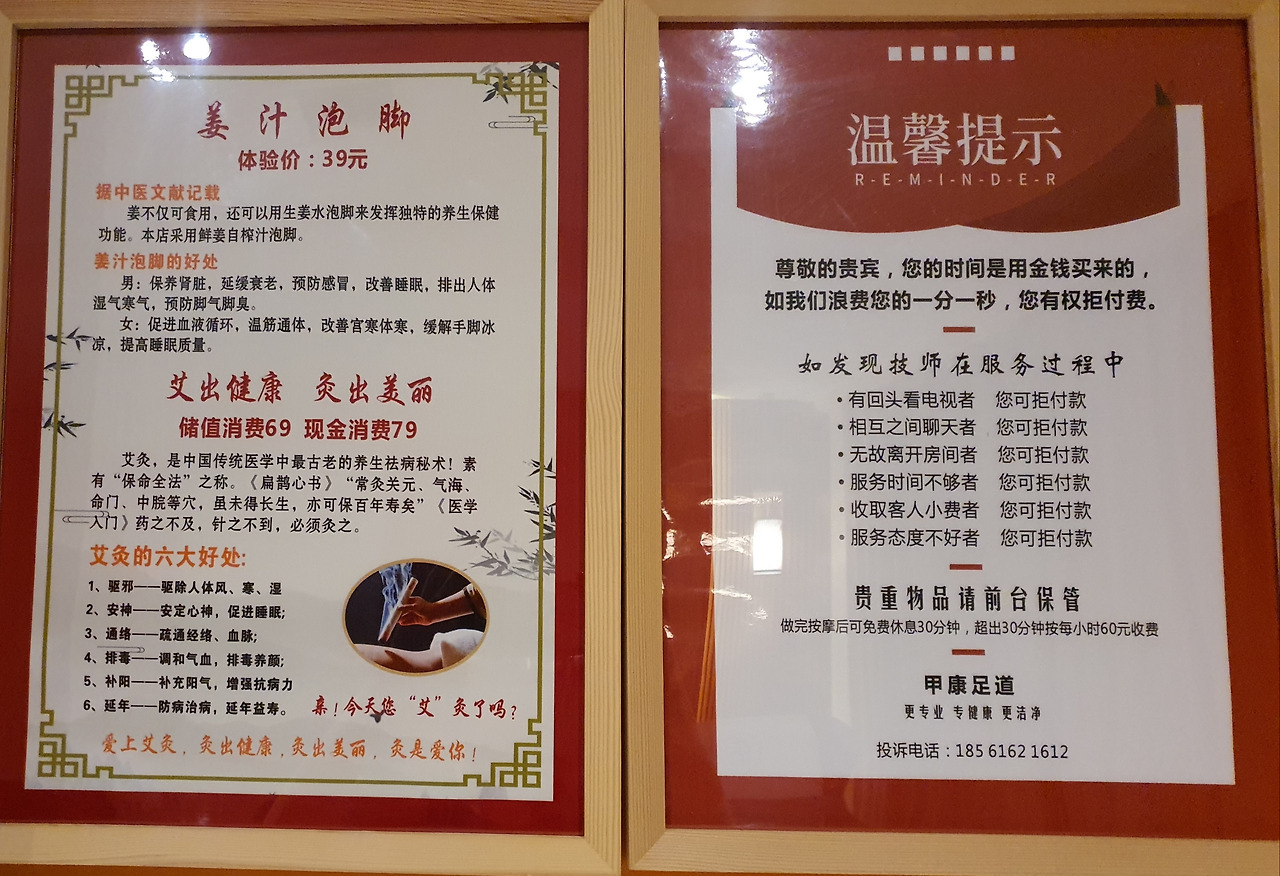 姜汁泡脚
体验价：39元
据中医文献记载
姜不仅可食用，还可以用生姜水泡脚来发挥独特的养生保健
功能。本店采用鲜姜自榨汁泡脚。
姜汁泡脚的好处
男：保养肾脏，延缓衰老，预防感冒，改善睡眠，排出人体
湿气寒气，预防脚气脚臭。
女：促进血液循环，温筋通体，改善宫寒体寒，缓解手脚冰
凉，提高睡眠质量。
艾出健康 灸出美丽
储值消费69 现金消费79
艾灸，是中国传统医学中最古老的养生祛病秘术！素
有“保命全法”之称。《扁鹊心书》“常灸关元、气海、
命门、中脘等穴，虽未得长生，亦可保百年寿矣”《医学
入门》药之不及，针之不到，必须灸之。
艾灸的六大好处:
1、驱邪——驱除人体风、寒、湿
2、安神——安定心神，促进睡眠;
3、通络——疏通经络、血脉;
4、排毒——调和气血，排毒养颜;
5、补阳——补充阳气，增强抗病力
6、延年——防病治病，延年益寿。
亲！今天您“艾”灸了吗？
爱上艾灸，灸出健康，灸出美丽，灸是爱你！
温馨提示
R-E-M-I-N-D-E-R
尊敬的贵宾，您的时间是用金钱买来的，
如我们浪费您的一分一秒，您有权拒付费。
如发现技师在服务过程中
•有回头看电视者 您可拒付款
•相互之间聊天者 您可拒付款
•无故离开房间者 您可拒付款
•服务时间不够者 您可拒付款
•收取客人小费者 您可拒付款
•服务态度不好者 您可拒付款
贵重物品请前台保管
做完按摩后可免费休息30分钟，超出30分钟按每小时60元收费
甲康足道
更专业 专健康 更洁净
投诉电话：185 6162 1612